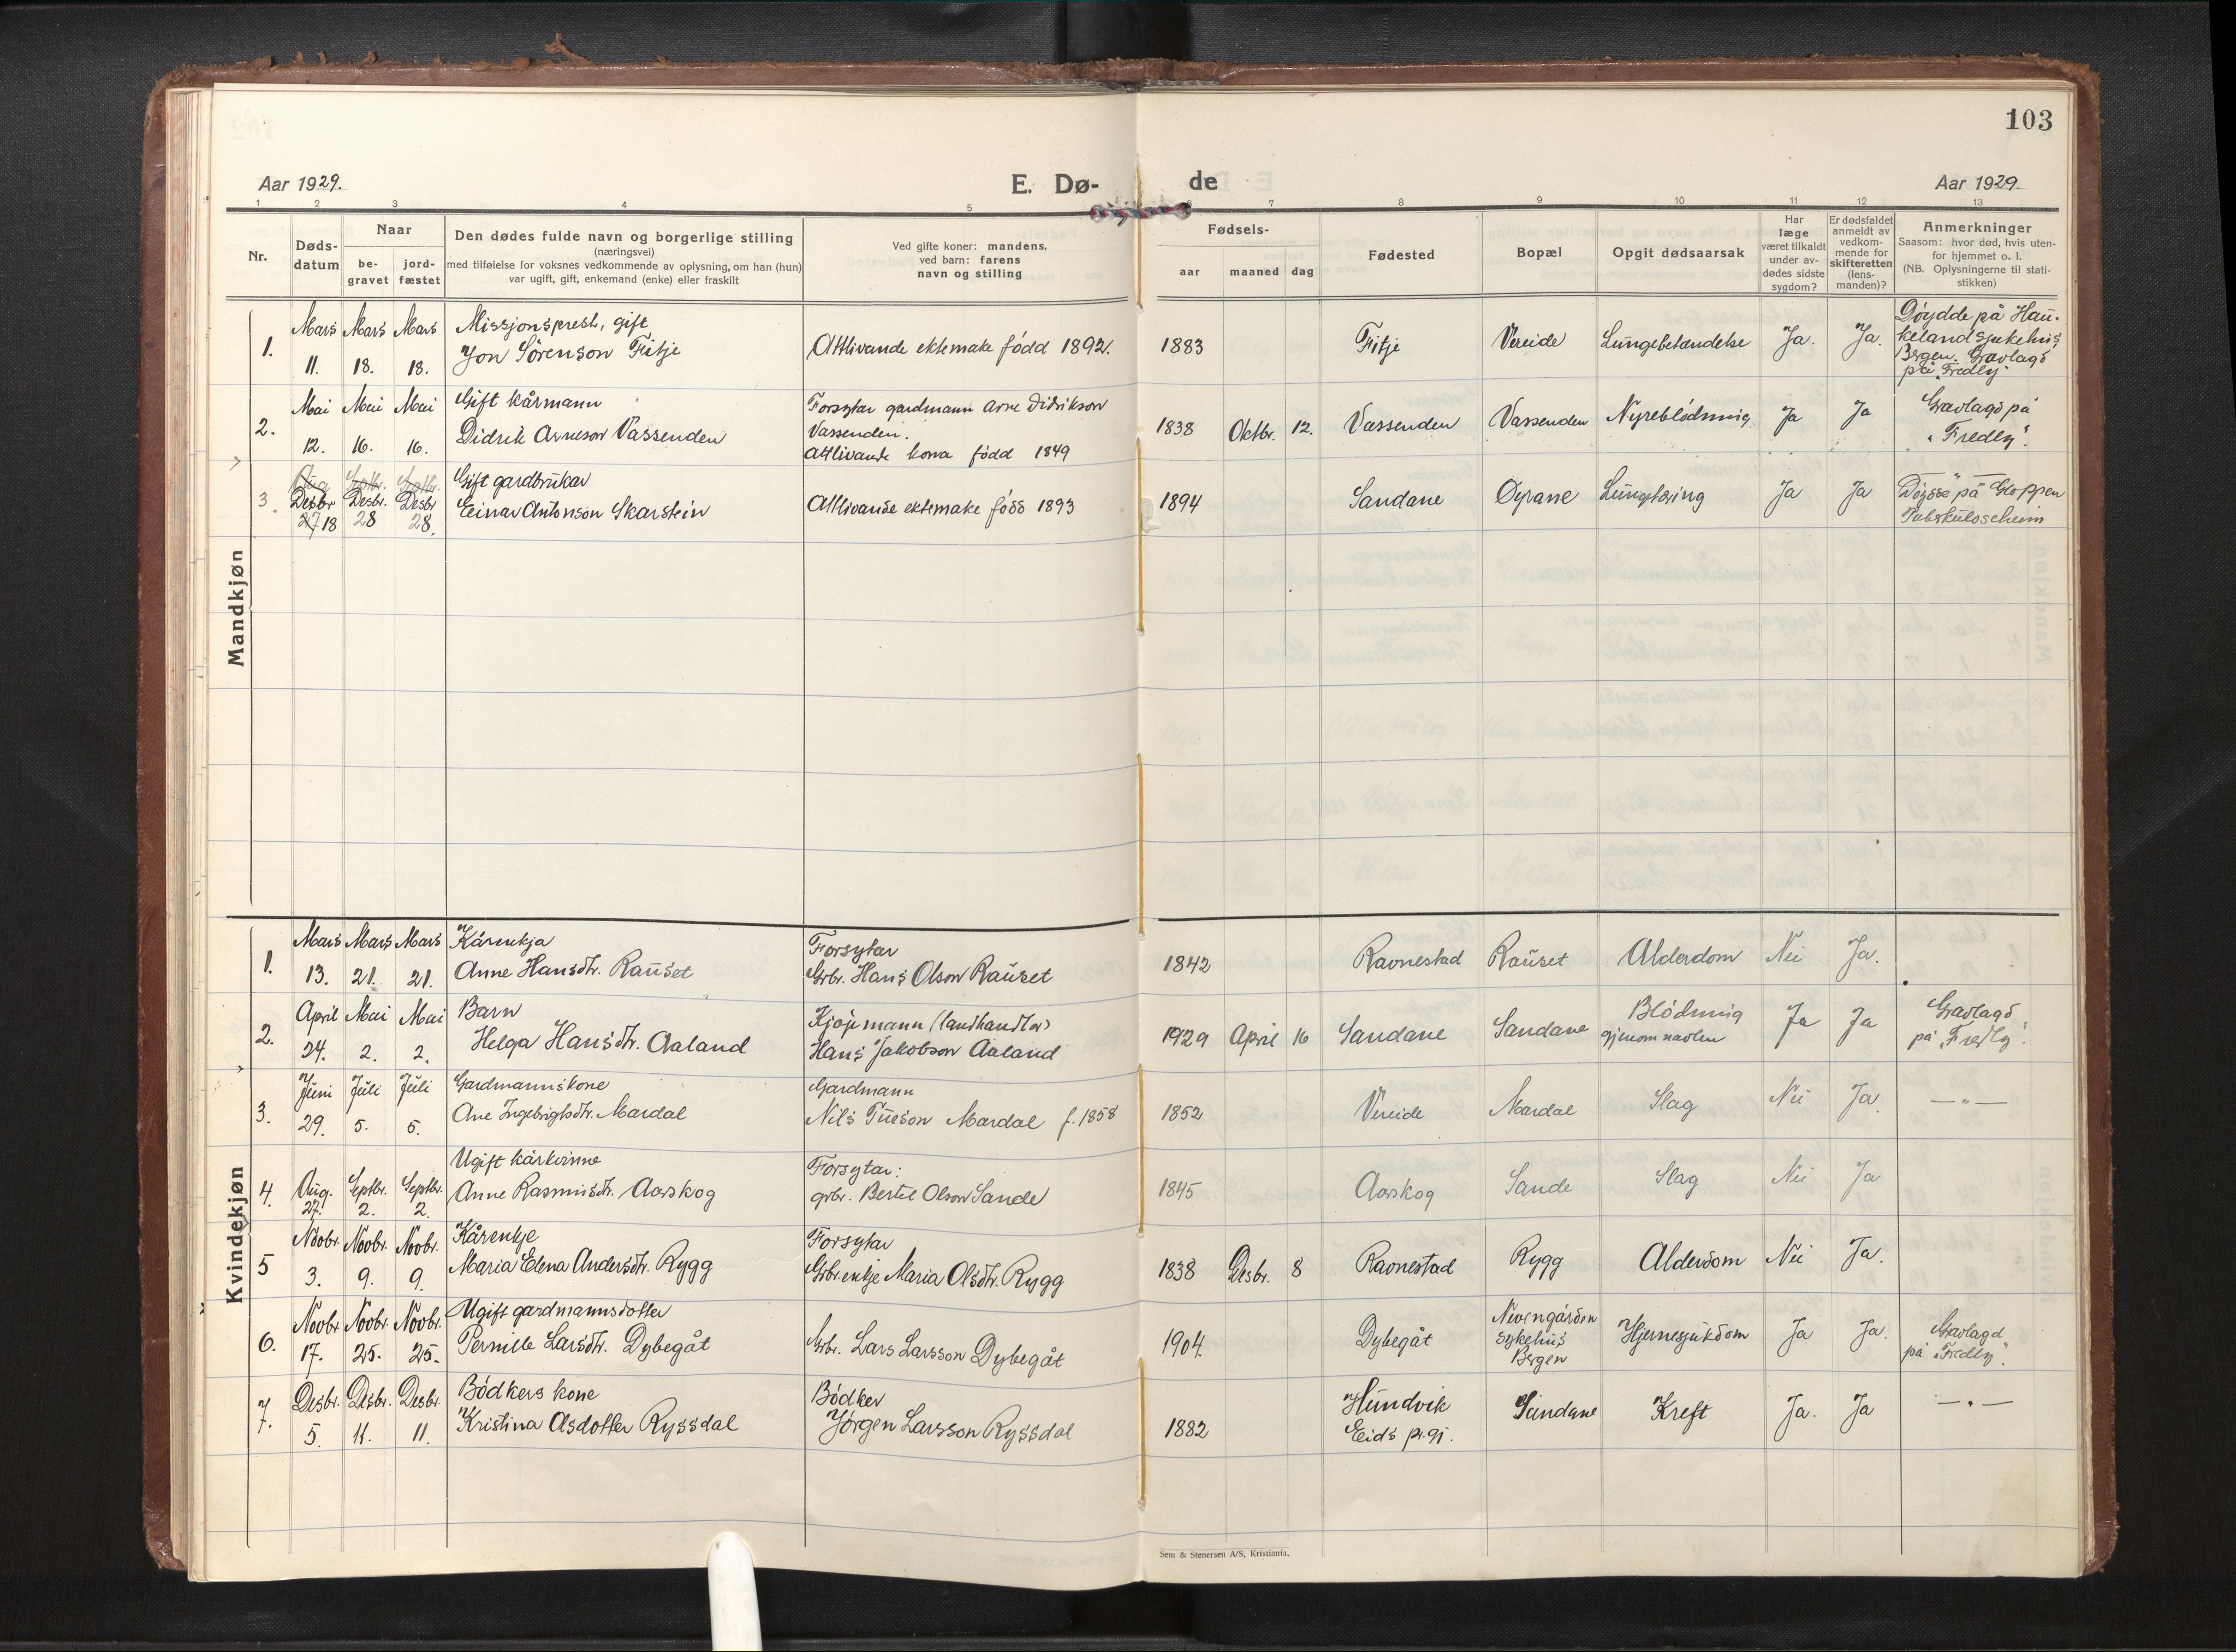 103
Aar 1929.
E. Dø-
de
Aar 1929.
1 2 3 4 5 6 7 8 9 10 11 12 13
Nr.
Døds-
datum
Naar
be-
gravet
jord-
fæstet
Den dødes fulde navn og borgerlige stilling
(næringsvei)
med tilføielse for voksnes vedkommende av oplysning, om han (hun)
var ugift, gift, enkemand (enke) eller fraskilt
Ved gifte koner: mandens,
ved barn: farens
navn og stilling
Fødsels-
aar maaned dag
Fødested
Bopæl
Opgit dødsaarsak
Har
læge
været tilkaldt
under av-
dødes sidste
sygdom?
Er dødsfaldet
anmeldt av
vedkom-
mende for
skifteretten
(lens-
manden)?
Anmerkninger
Saasom: hvor død, hvis uten-
for hjemmet o. l.
(NB. Oplysningerne til stati-
stikken)
Mandkjøn
1.
Mars Mars Mars
11. 18. 18.
Missjonsprest, gift
Jon Sörenson Fitje
Attlivande ektemake född 1892.
1883
Fitje
Vereide
Lungebetændelse
Ja.
Ja.
Döydde på Hau-
keland sjukehus,
Bergen. Gravlagd
på "Fredly"
2.
Mai Mai Mai
12. 16. 16.
Gift kårmann
Didrik Arneson Vassenden
Forsytar gardmann Arne Didrikson
Vassenden.
Attlivande kona född 1849
1838 Oktbr. 12.
Vassenden
Vassenden
Nyreblödning
Ja
Ja
Gravlagd på
"Fredly".
3.
Aug Septbr. Septbr.
Desbr Desbr. Desbr
27 18 28 28.
Gift gardbrukar
Einar Antonson Skarstein
Attlivande ektemake född 1893
1894
Sandane
Öyrane
Lungetæring
Ja
Ja
— " —
Döydde på Gloppen
Tuberkuloseheim
Kvindekjøn
1.
Mars Mars Mars
13. 21. 21.
Kårenkja
Anne Hansdtr. Rauset
Forsytar
Grbr. Hans Olson Rauset
1842
Ravnestad
Rauset
Alderdom
Nei
Ja.
2.
April Mai Mai
24. 2. 2.
Barn
Helga Hansdtr. Aaland
Kjöpmann (landhandler)
Hans Jakobson Aaland
1929 April 16
Sandane
Sandane
Blödning
gjenom navlen
Ja
Ja
Gravlagd
på "Fredly".
3.
Juni Juli Juli
29. 5. 5.
Gardmannskone
Ane Ingebrigtsdtr. Mardal
Gardmann
Nils Tueson Mardal f. 1858
1852
Vereide
Mardal
Slag
Nei
Ja.
— " —
4.
Aug. Septbr. Septbr.
27. 2. 2.
Ugift kårkvinne
Anne Rasmusdtr. Aarskog
Forsytar:
grbr. Bertil Olson Sande
1845
Aarskog
Sande
Slag
Nei
Ja
5
Novbr. Novbr. Novbr.
3. 9. 9.
Kårenkje
Maria Elena Andersdtr. Rygg
Forsytar
Grbr.enkje Maria Olsdtr. Rygg
1838 Desbr. 8
Ravnestad
Rygg
Alderdom
Nei
Ja.
6.
Novbr Novbr. Novbr.
17. 25. 25.
Ugift gardmannsdotter
Pernille Larsdtr. Dybegåt
Grbr. Lars Larsson Dybegåt
1904.
Dybegåt
Nevengården
sykehus
Bergen
Hjernesjukdom
Ja
Ja.
Gravlagd
på "Fredly".
7.
Desbr. Desbr. Desbr.
5. 11. 11.
Bödkers kone
Kristina Olsdotter Ryssdal
Bödker
Jörgen Larsson Ryssdal
1882
Hundvik
Eids pr.gj.
Sandane
Kreft
Ja.
Ja
— " —
Sem & Stenersen A/S, Kristiania.